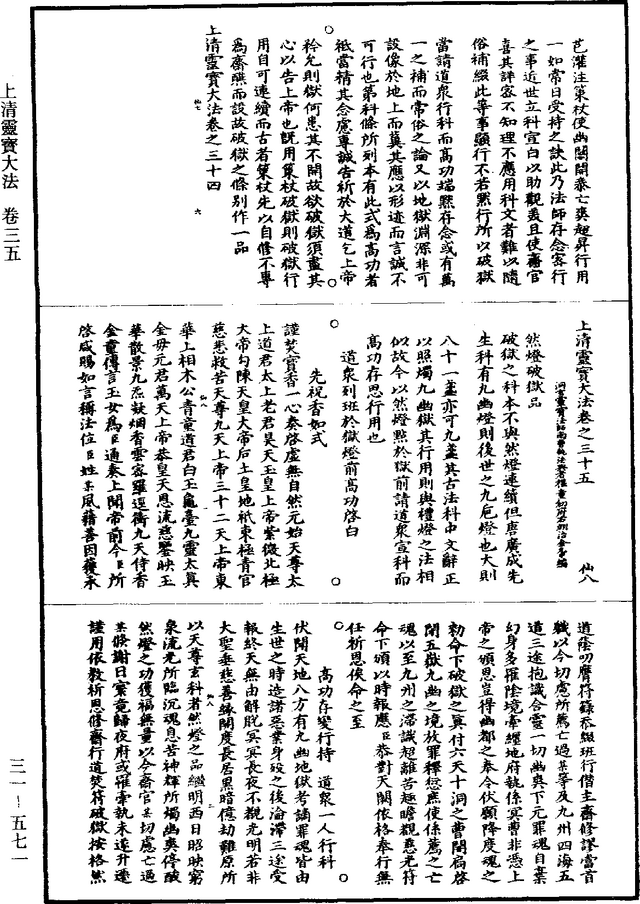 上清靈寶大法　卷三五
三一–五七一
芒灌注策杖使幽關開泰亡爽超昇行用
一如常日受持之訣此乃法師存念密行
之事近世立科宣白以助觀美且使齋官
喜其詳密不知理不應用科文者難以隨
俗補綴此等事顯行不若默行所以破獄
當請道衆行科而高功端默存念或有萬
一之補而常俗之論又以地獄淵源非可
設像於地上而冀其應以形迹而言誠不
可行也第科條所列本有此式為高功者
祗當精其念慮專誠告祈於大道乞上帝
矜允則獄何患其不開故欲破獄須盡其
心以告上帝也既用策杖破獄則破獄行
用自可連續而古者策杖先以自修不專
為齋醮而設故破獄之條别作一品
上清靈寶大法卷之三十四
上清靈寶大法卷之三十五　仙八
然燈破獄品
破獄之科本不與然燈連續但唐廣成先
生科有九幽燈則後世之九巵燈也大則
八十一盞亦可九盞其古法科中文辭正
以照燭九幽獄其行用則與禮燈之法相
似故今以然燈點於獄前請道衆宣科而
高功存思行用也
道衆列班於獄燈前高功啓白
先祝香如式
謹焚寳香一心奏啓虛無自然元始天尊太
上道君太上老君昊天玉皇上帝紫微北極
大帝勾陳天皇大帝后土皇地祇東極青宮
慈悲救苦天尊九天上帝三十二天上帝東
華上相木公青童道君白玉龜臺九靈太真
金毋元君萬天上帝恭望天恩流慈鑒映玉
華散景九炁凝烟香雲密羅逕衝九天侍香
金童傳言玉女為臣通奏上聞帝前令臣所
啓咸賜如言稱法位臣姓某夙藉善因獲承
道蔭叨膺符籙忝綴班行偕主齋修謬當首
職以今切慮所薦亡過某等及九州四海五
道三途抱識含靈一切幽爽下元罪魂自棄
幻身多罹陰境牽纏地府執係冥曹非憑上
帝之頒恩豈得幽都之奉令伏願降度魂之
勑命下破獄之真符六天十洞之曹開扃啓
閉五獄九幽之境放罪釋愆無使係薦之亡
魂以至九州之滯識超離苦趣瞻觀慈光符
命下頒以時報應臣恭對天闕依格奉行無
任祈恩俟命之至
高功存變行持　道衆一人行科
伏聞天地八方有九幽地獄考謫罪魂皆由
生世之時造諸惡業身歿之後淪滯三途受
報終天無由解脫冥冥長夜不覩光明若非
大聖垂慈善緣開度長居黑暗億劫難原所
以天尊玄科者然燈之品繼明西日昭映窮
泉流光所臨沉魂息苦神輝所燭幽爽停酸
然燈之功獲福無量以今齋官某切慮亡過
某倏謝日寰竟歸夜府或罹牽執未遂升遷
謹用依教祈恩修齋行道焚符破獄按格然